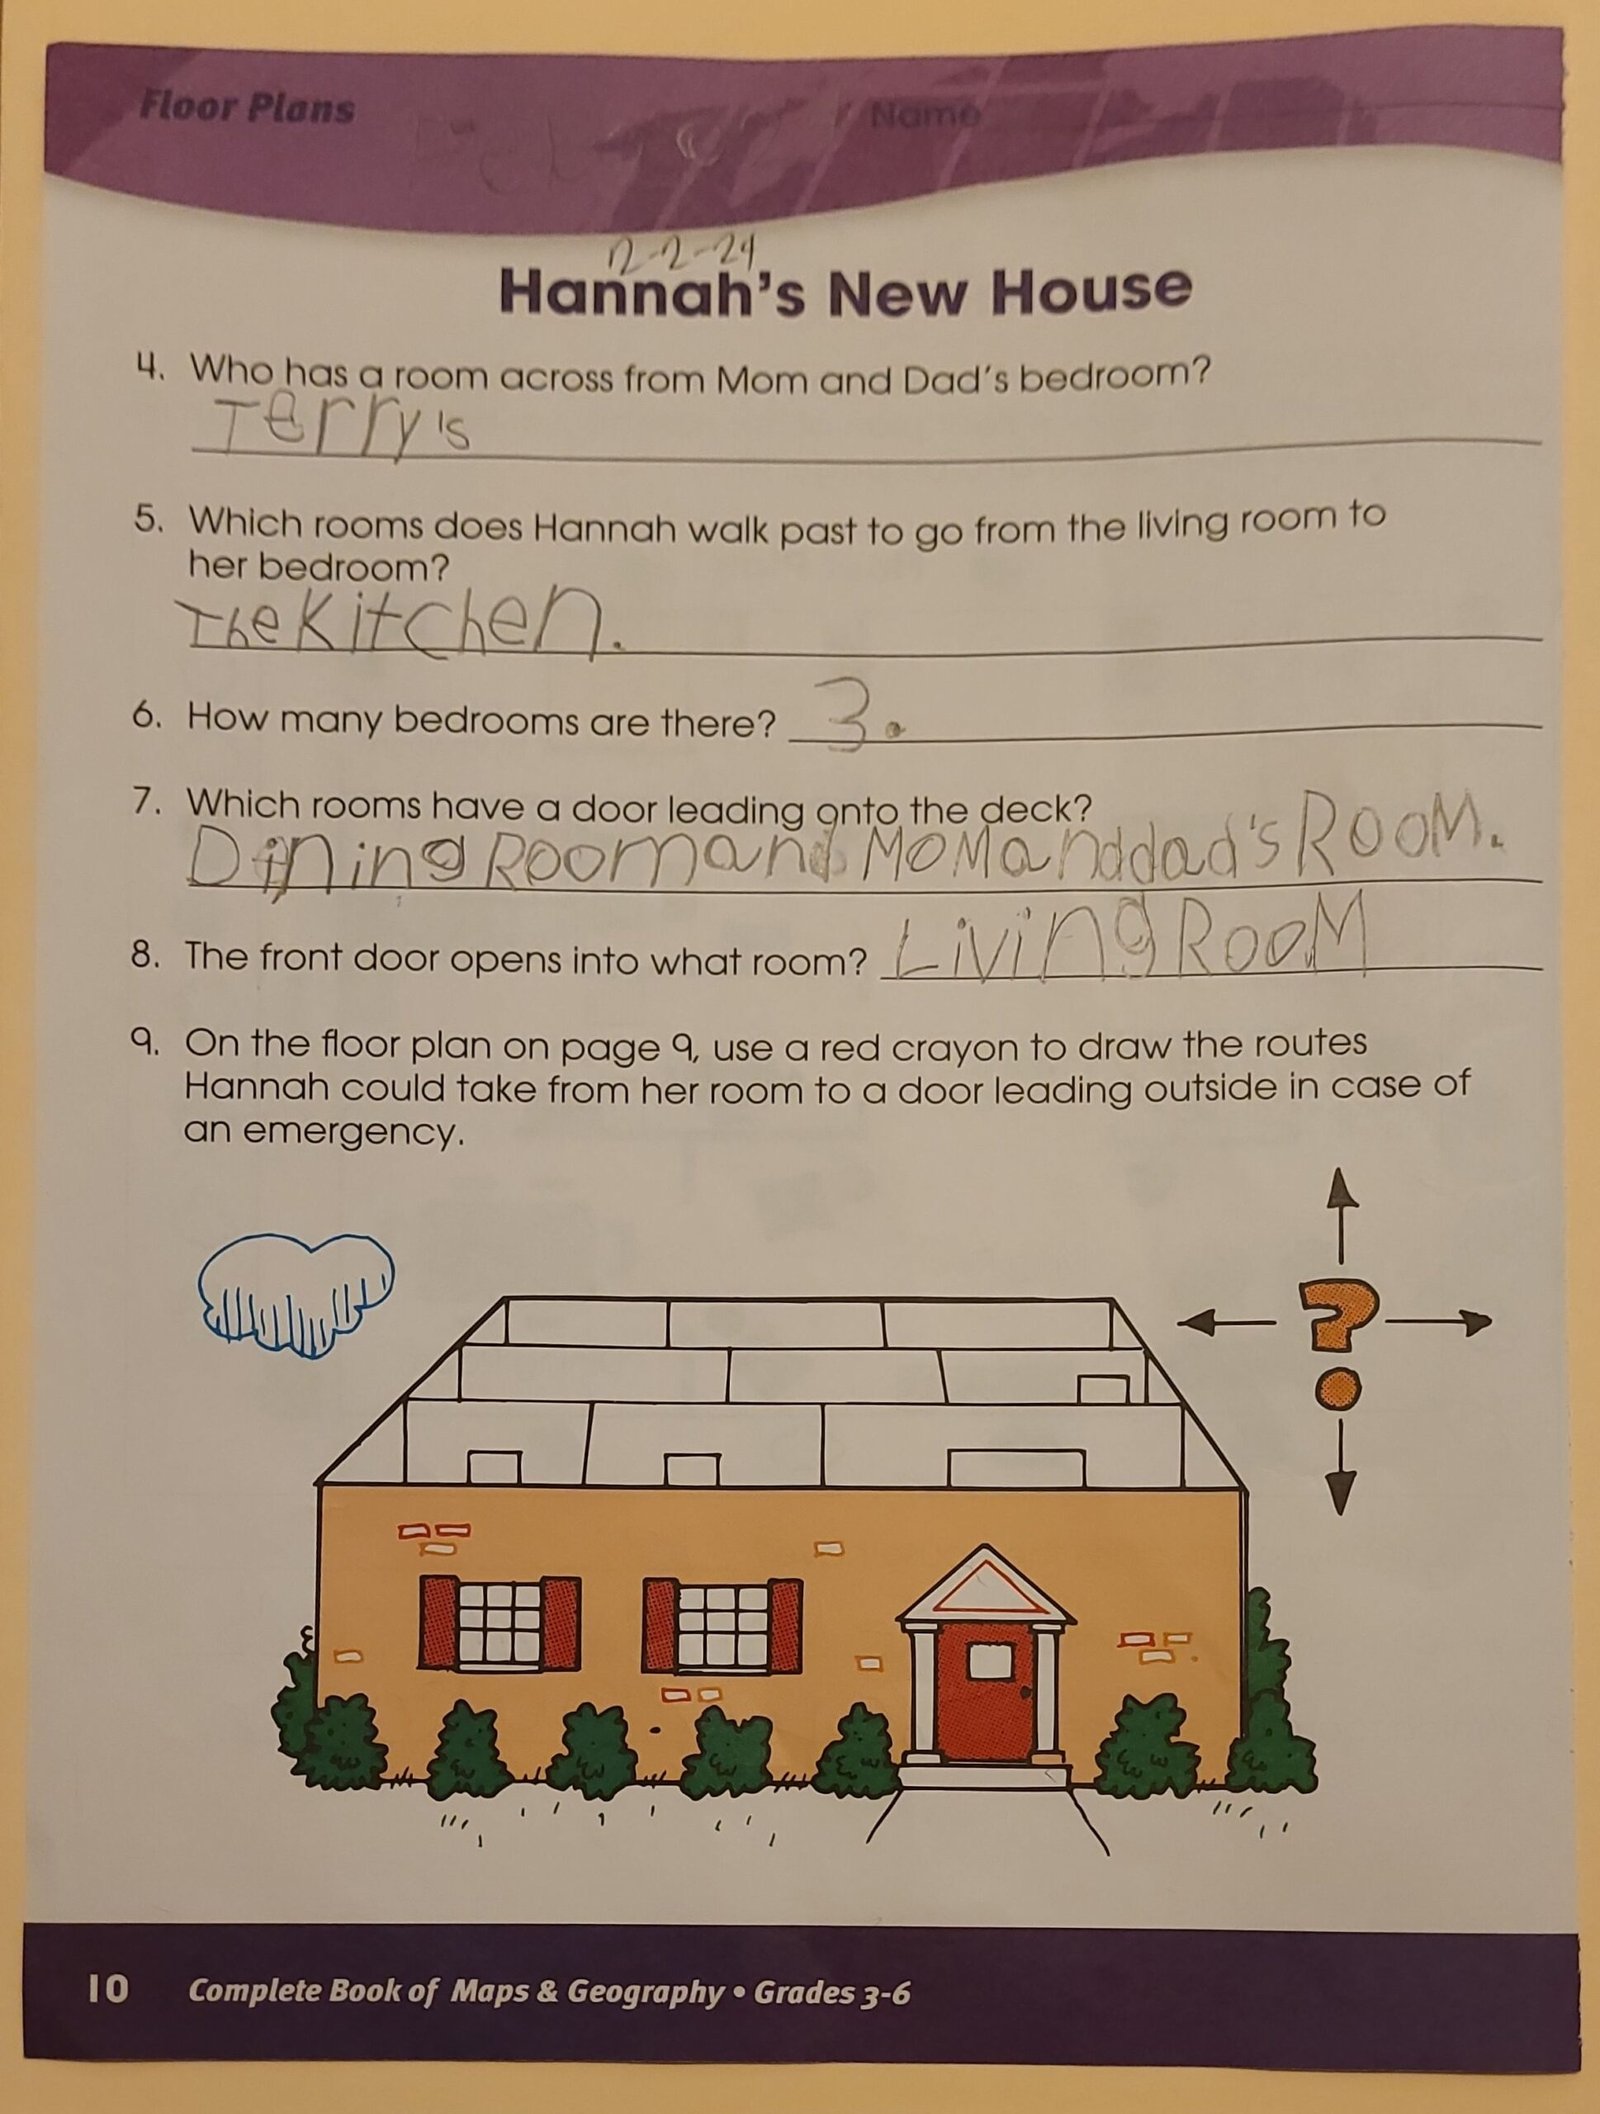 Floor Plans Name
12-2-24
Hannah's New House
4. Who has a room across from Mom and Dad's bedroom?
Terry's
5. Which rooms does Hannah walk past to go from the living room to
her bedroom?
The Kitchen.
6. How many bedrooms are there? 3.
7. Which rooms have a door leading onto the deck?
Dining Room and Mom and dad's Room.
8. The front door opens into what room? Living Room
9. On the floor plan on page 9, use a red crayon to draw the routes
Hannah could take from her room to a door leading outside in case of
an emergency.
?
10 Complete Book of Maps & Geography • Grades 3-6